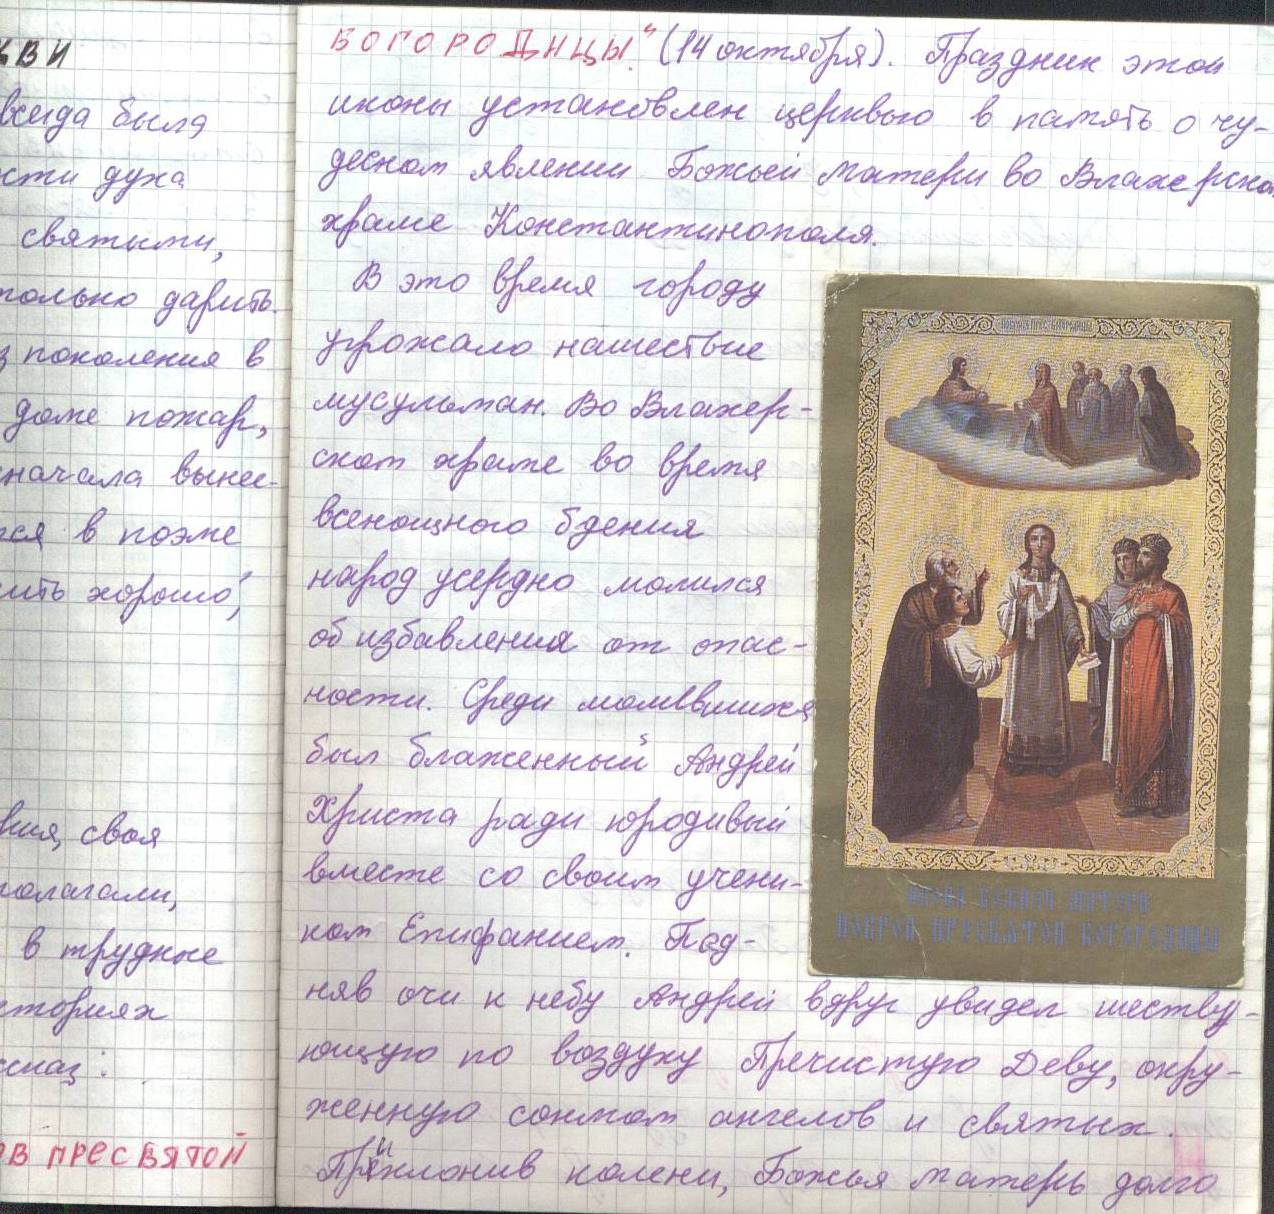 КВИ
всегда была
сти духа
святыми,
только дарить.
з поколения в
доме пожар,
сначала вынес-
тся в поэме
ить хорошо,
ния, своя
полагали,
в трудные
сториях
сказ:
ОВ ПРЕСВЯТОЙ
БОГОРОДИЦЫ." (14 октября). Праздник этой
иконы установлен церквью в память о чу-
десном явлении Божьей матери во Влахерско
храме Константинополя.
В это время городу
угрожало нашествие
мусульман. Во Влахер-
ском храме во время
всенощного бдения
народ усердно молился
об избавления от опас-
ности. Среди молившихся
был блаженный Андрей
Христа ради юродивый
вместе со своим учени-
ком Епифанием. Под-
няв очи к небу Андрей вдруг увидел шеству-
ющую по воздуху Пречистую Деву, окру-
женную сонмом ангелов и святых.
Приклонив колени, Божья матерь долго
ИКОНА БОЖИЕЙ МАТЕРИ
ПОКРОВ ПРЕСВЯТОЙ БОГОРОДИЦЫ